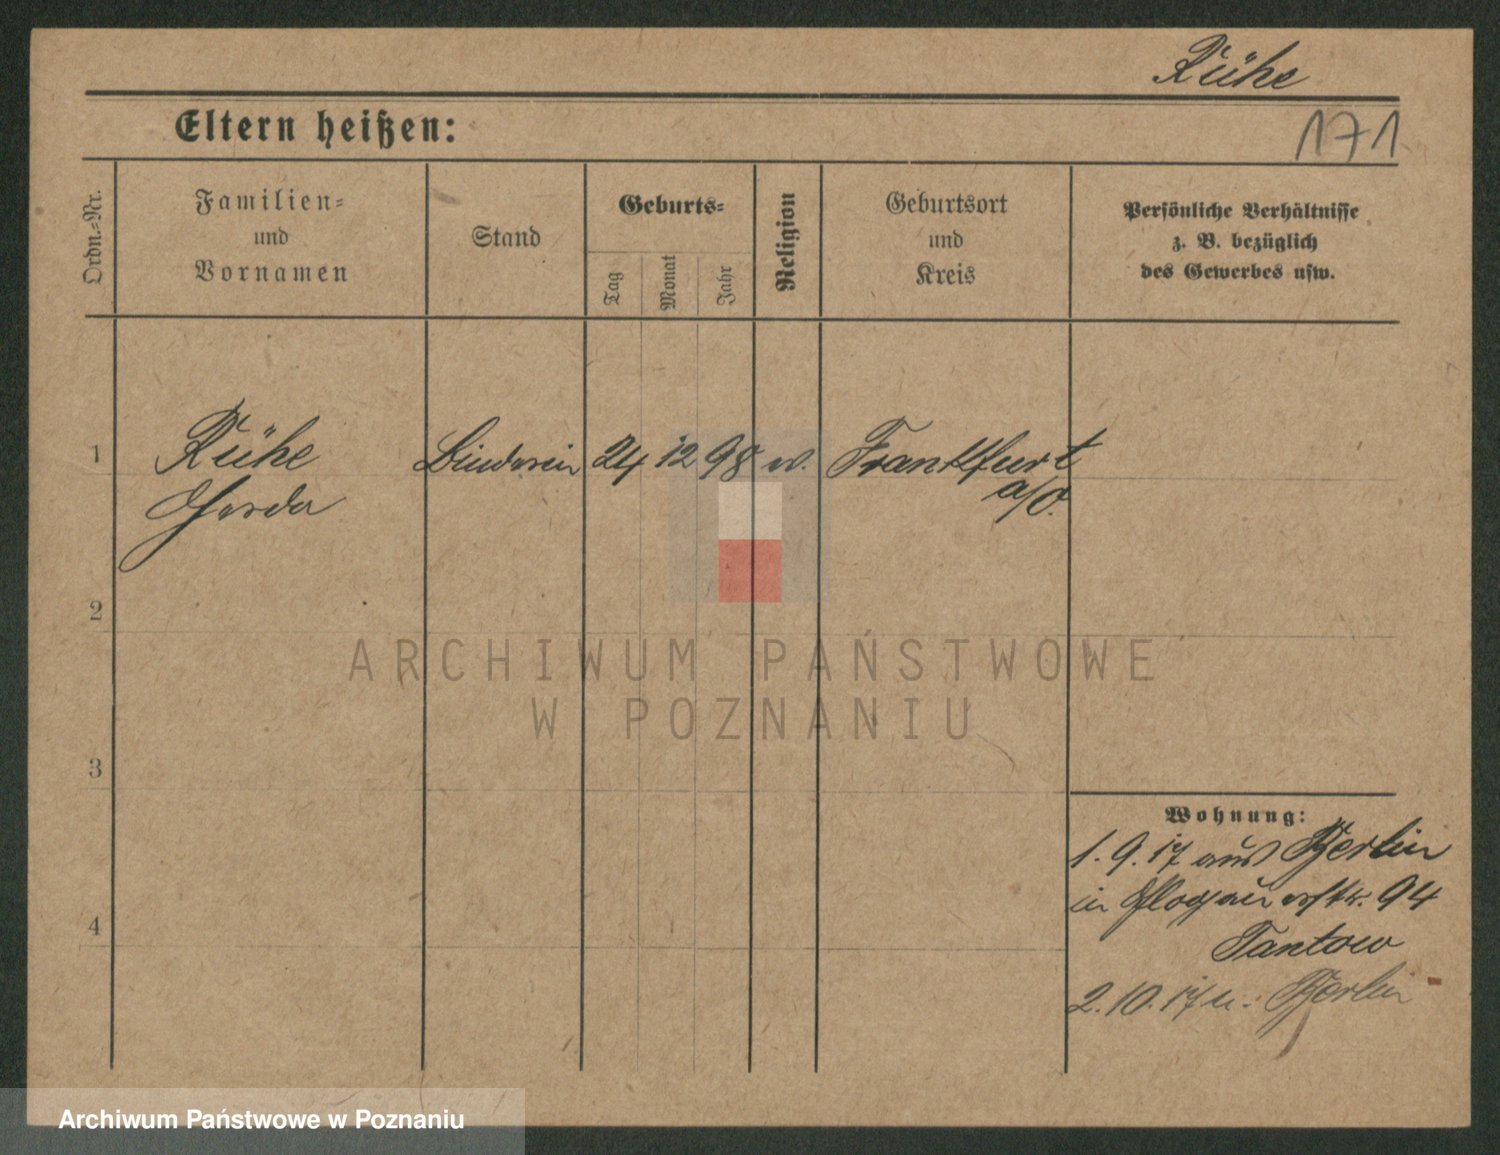 Rühe
Eltern heißen:
171
Ordn.-Nr.
Familien-
und
Vornamen
Stand
Geburts-
Tag
Monat
Jahr
Religion
Geburtsort
und
Kreis
Persönliche Verhältnisse
z. B. bezüglich
des Gewerbes usw.
1
Rühe
Gerda
Binderin
24
12
98
ev.
Frankfurt
a/O.
2
3
4
Wohnung:
1. 9. 17 aus Berlin
in Glogauerstr. 94
Tantow
2. 10. 17 n. Berlin
ARCHIWUM PAŃSTWOWE
W POZNANIU
Archiwum Państwowe w Poznaniu